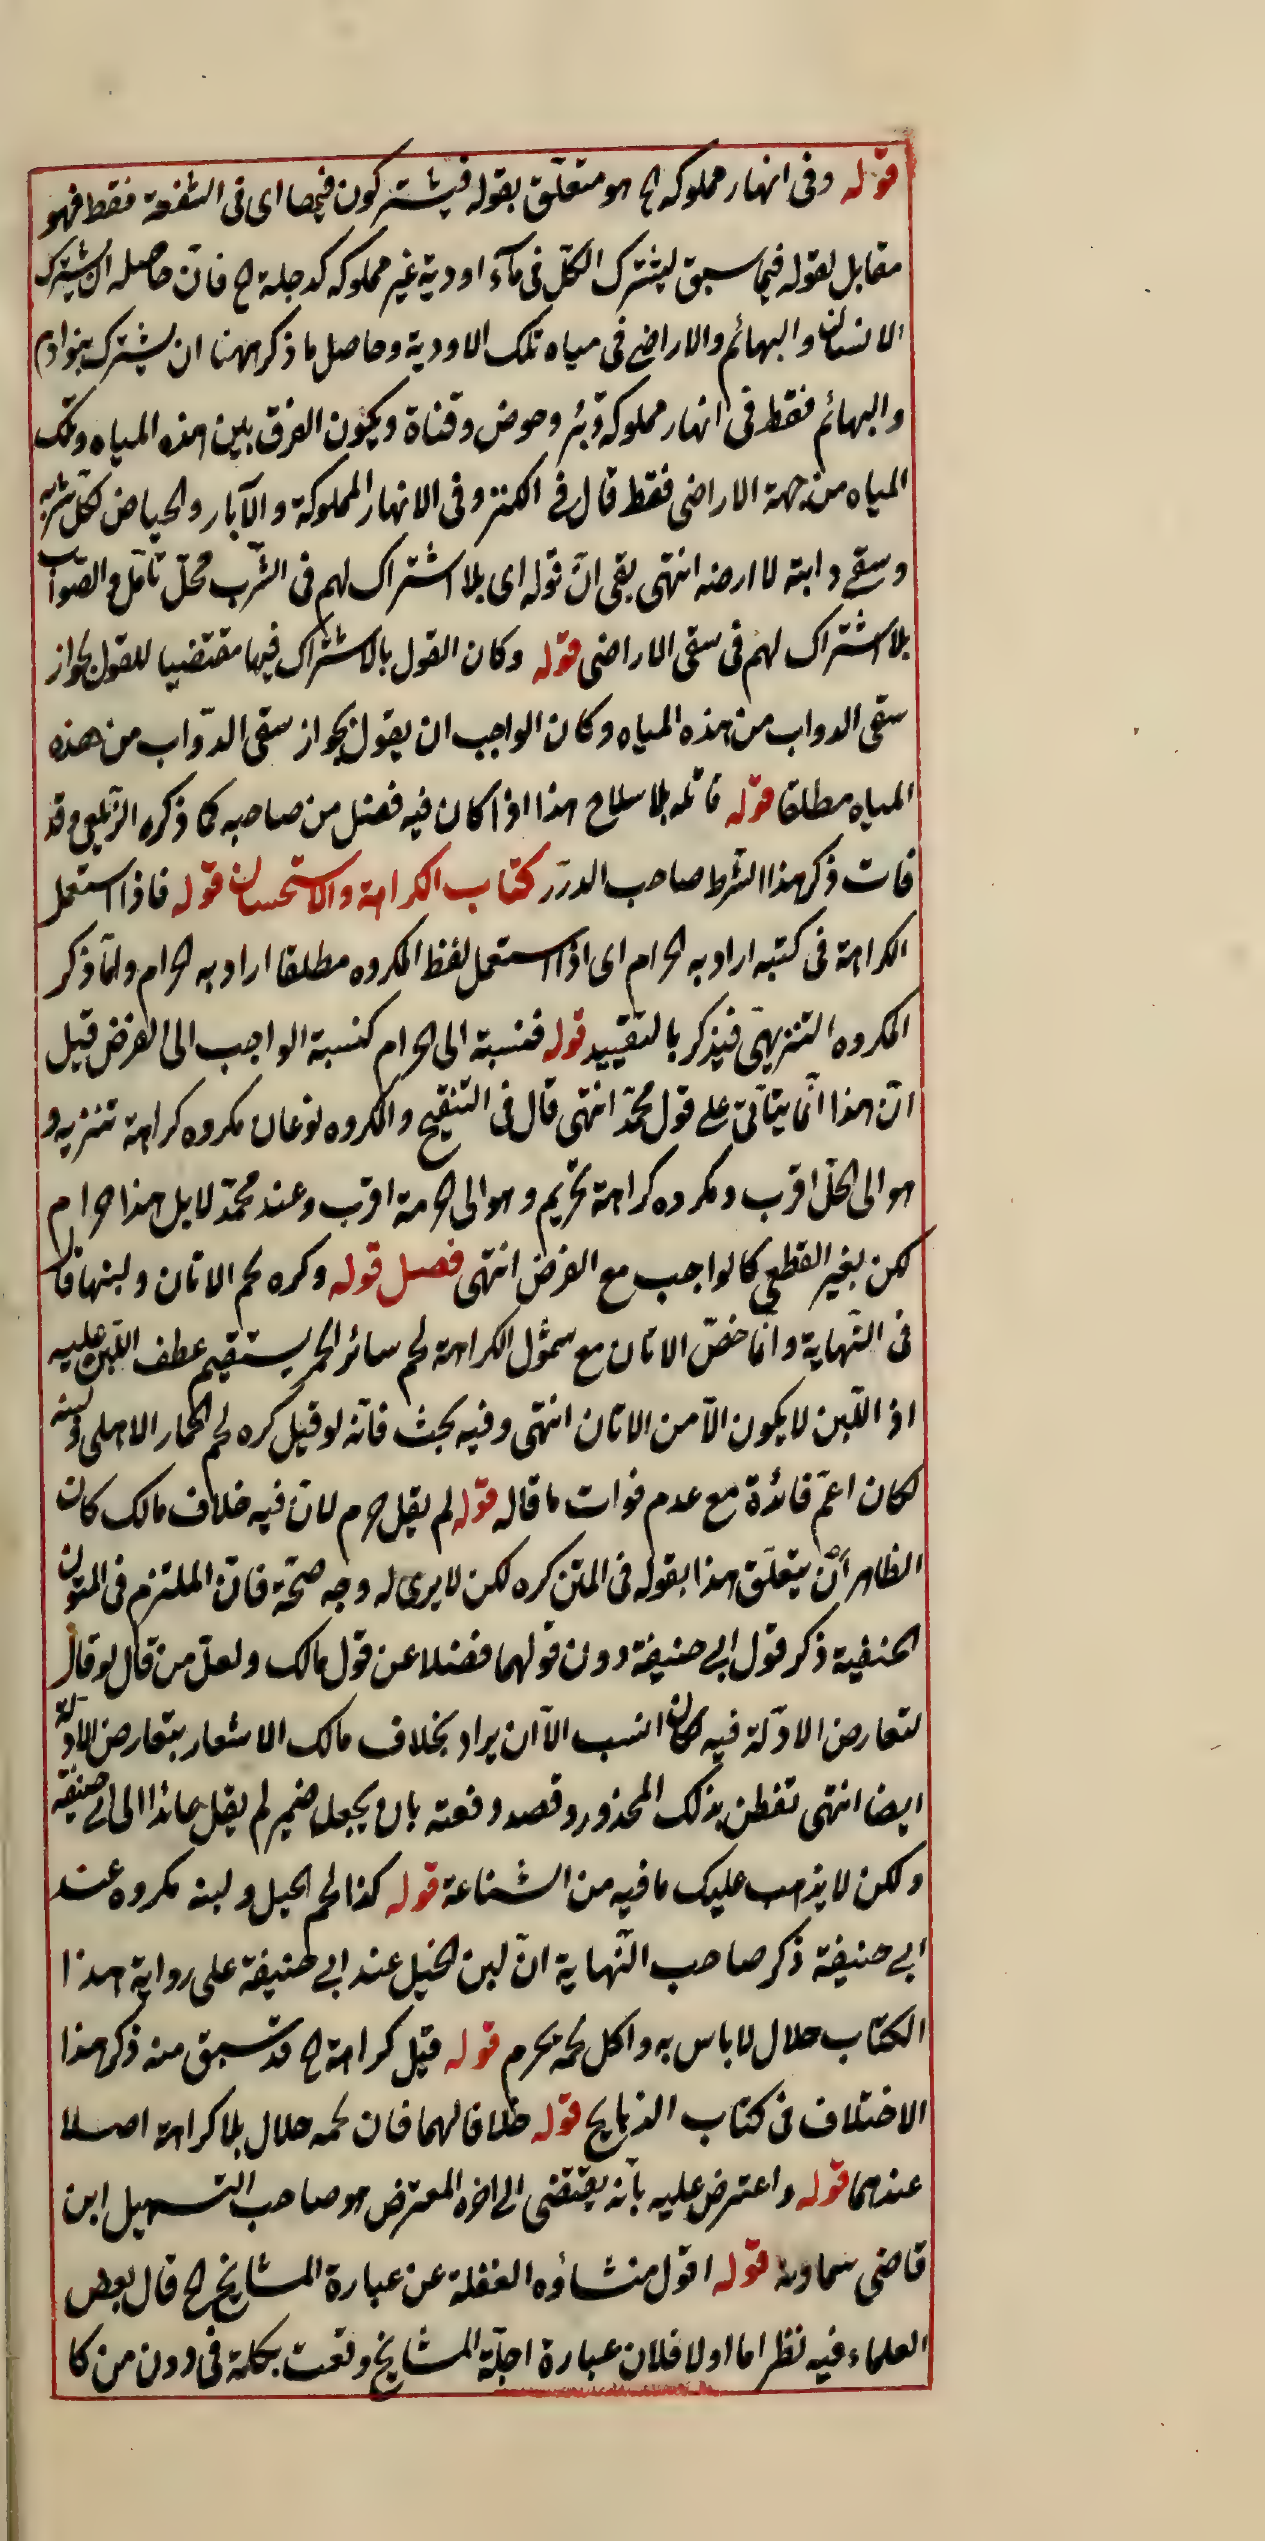 قوله وفى انهار مملوكه الخ هو متعلق بقوله فيشتركون فيها اى فى الشفعة فقط فهو
مقابل لقوله فيما سبق ليشترك الكل فى ماء اودية غير مملوكه كدجلة الخ فان حاصله اشتراك
الانسان والبهائم والاراضى فى مياه تلك الاودية وحاصل ما ذكر ههنا ان يشترك بنو ادم
والبهائم فقط فى انهار مملوكة وبئر وحوض وقناة ويكون الفرق بين هذه المياه وتلك
المياه من جهة الاراضى فقط قال فى الكنز وفى الانهار المملوكة والآبار والحياض لكل شربه
وسقى دابته لا ارضه انتهى بقى ان قوله اى بلا اشتراك لهم فى الشرب محل تأمل والصواب
بلا اشتراك لهم فى سقى الاراضى قوله وكان القول بالاشتراك فيها مقتضيا للقول بجواز
سقى الدواب من هذه المياه وكان الواجب ان يقول بجواز سقى الدواب من هذه
المياه مطلقا قوله قاتله بلا سلاح هذا اذا كان فيه فضل من صاحبه كما ذكره الزيلعى وقد
فات ذكر هذا الشرط صاحب الدرر كتاب الكراهة والاستحسان قوله فاذا استعمل
الكراهة فى كتبه اراد به الحرام اى اذا استعمل لفظ المكروه مطلقا اراد به الحرام واما ذكر
المكروه التنزيهى فيذكر بالتقييد قوله فنسبة الى الحرام كنسبة الواجب الى الفرض قيل
ان هذا انما يتأتى على قول محمد انتهى قال فى التنقيح والمكروه نوعان مكروه كراهة تنزيه و
هو الى الحل اقرب ومكروه كراهة تحريم وهو الى الحرمة اقرب وعند محمد لا بل هذا حرام
لكن بغير القطعى كالواجب مع الفرض انتهى فصل قوله وكره لحم الاتان ولبنها قا
فى النهاية وانما خص الاتان مع شمول الكراهة لحم سائر الحمر يستقيم عطف اللبن عليه
اذ اللبن لا يكون الا من الاتان انتهى وفيه بحث فانه لو قيل كره لحم الحمار الاهلى ولبنه
لكان اعم فائدة مع عدم فوات ما قاله قوله لم يقل حرم لان فيه خلاف مالك كان
الظاهر ان يتعلق هذا بقوله فى المتن كره لكن لا يرى له وجه صحة فان الملتزم فى المتون
الحنفية ذكر قول ابى حنيفة دون قولهما فضلا عن قول مالك ولعل من قال لو قال
لتعارض الادلة فيه لكان انسب الا ان يراد بخلاف مالك الاشعار بتعارض الادلة
ايضا انتهى تفطن بذلك المحذور وقصد دفعته بان يجعل ضمير لم يقل عائدا الى ابى حنيفة
ولكن لا يذهب عليك ما فيه من الشناعة قوله كذا لحم الخيل ولبنه مكروه عند
ابى حنيفة ذكر صاحب النهاية ان لبن الخيل عند ابى حنيفة على رواية هذا
الكتاب حلال لا باس به واكل لحمه محرم قوله قيل كراهة الخ قد سبق منه ذكر هذا
الاختلاف فى كتاب الذبايح قوله خلافا لهما فان لحمه حلال بلا كراهة اصلا
عندهما قوله واعترض عليه بانه يقتضى الى اخره المعترض هو صاحب التسهيل ابن
قاضى سماونه قوله اقول منشاؤه الغفلة عن عبارة المشايخ الخ قال بعض
العلماء فيه نظر اما اولا فلان عبارة اجلة المشايخ وقعت بكلمة فى دون من كا